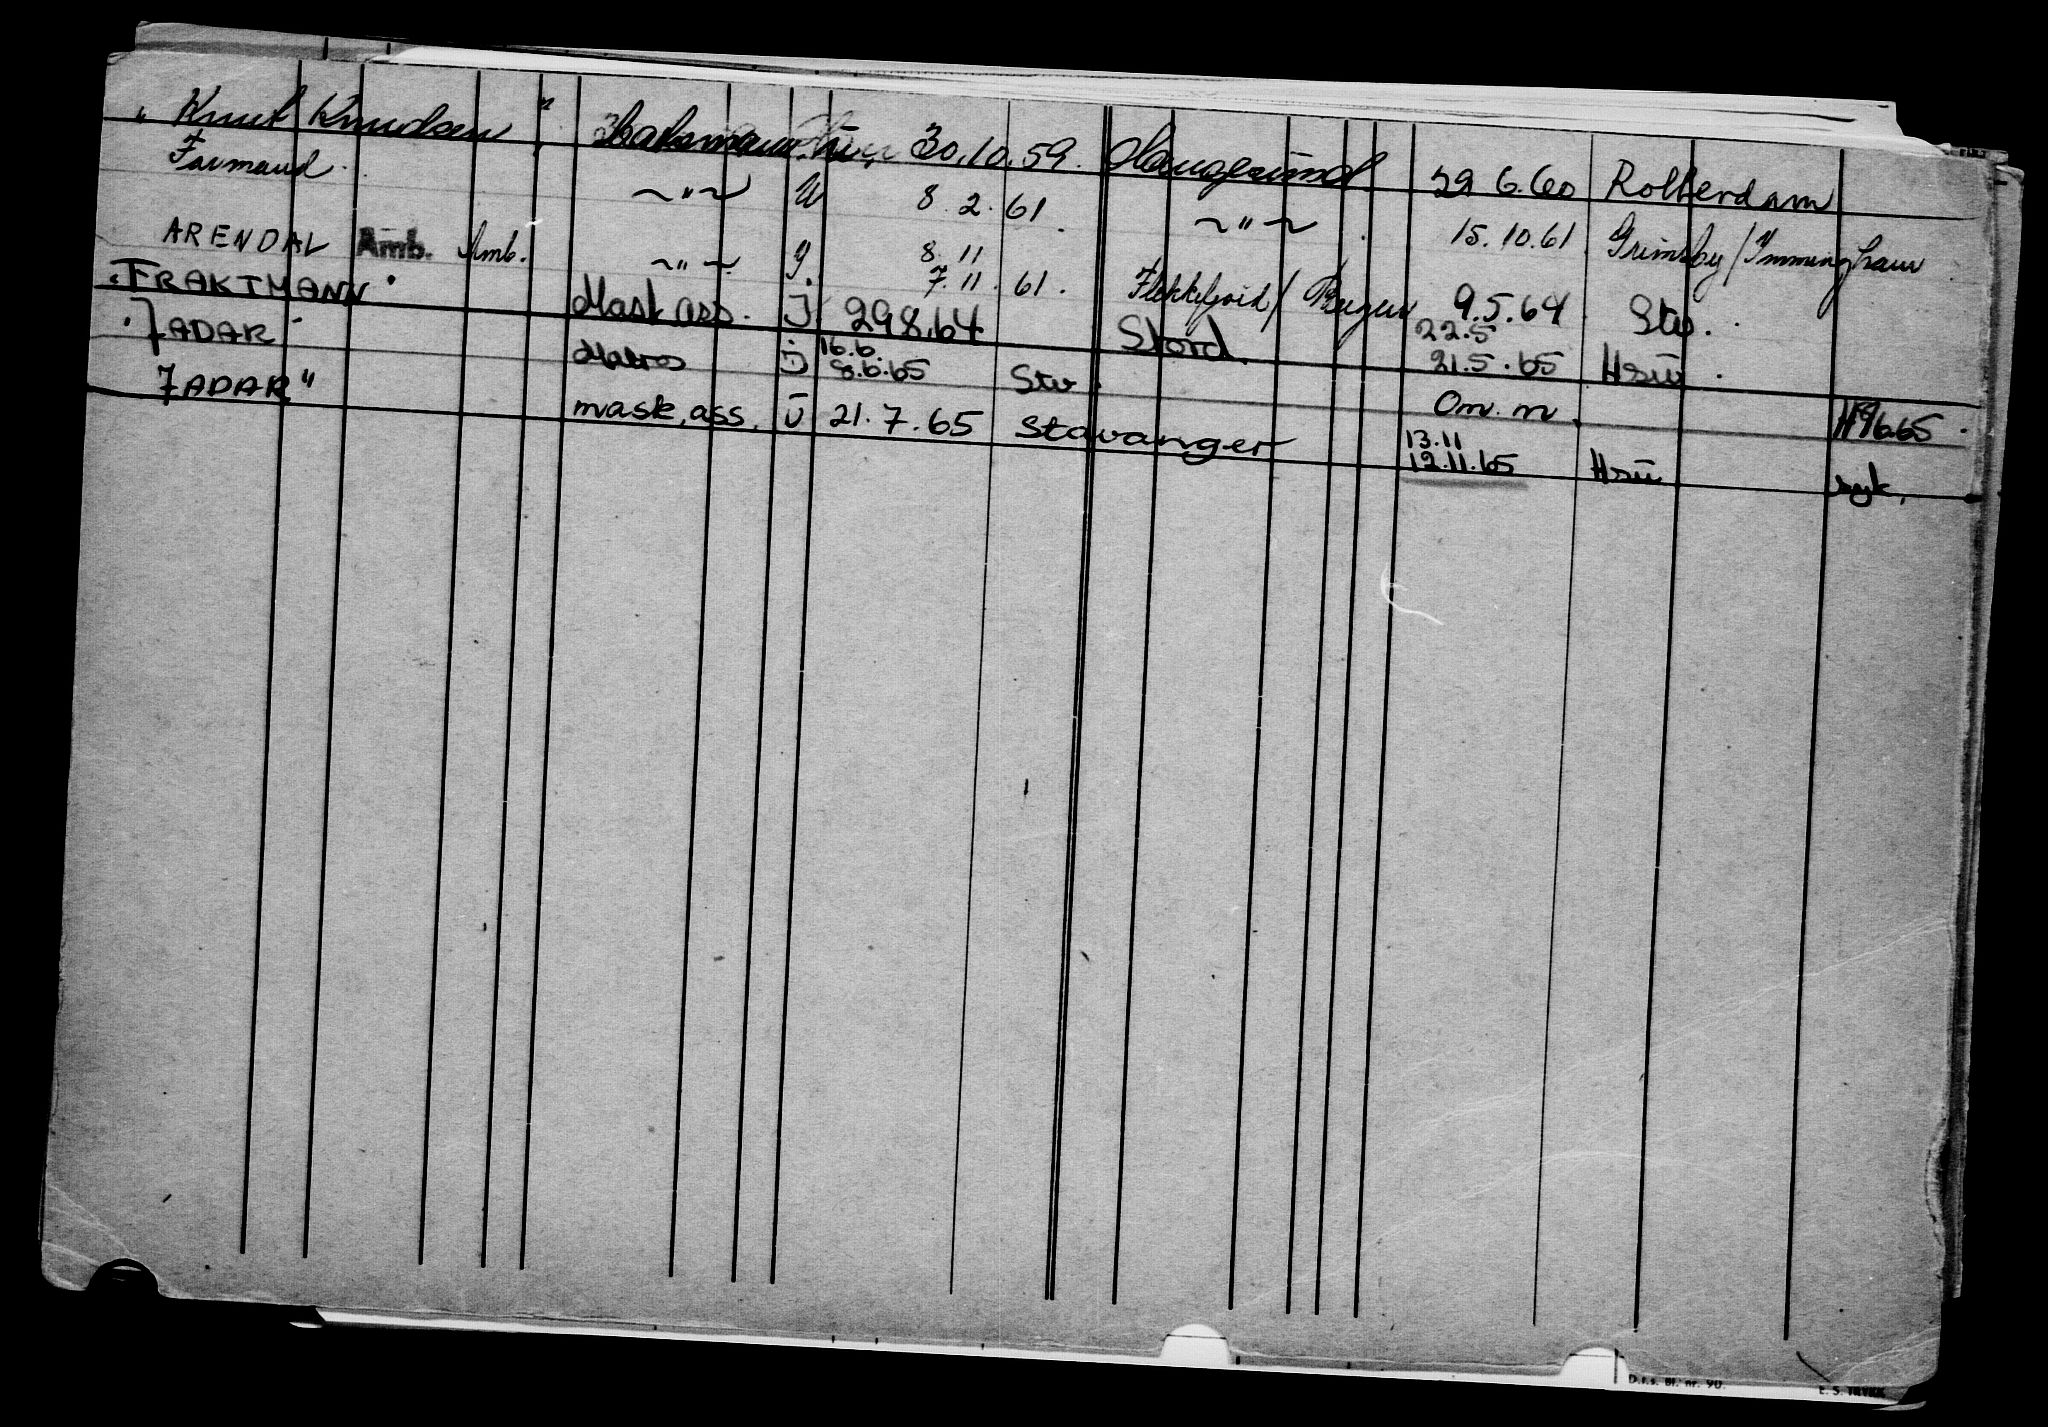 " Knut Knudsen " 30.10.59. Haugesund 29 6.60 Rotterdam
Farmand ~"~ U 8.2.61. ~"~ 15.10.61 Grimsby/Immingham
ARENDAL Amb. Amb. ~"~ J. 8.11 7.11.61. Flekkefjord/Bergen 9.5.64 Stv.
"FRAKTMANN" Mask ass. J 29.8.64 Stord. 22.5 21.5.65 Hsu.
"JADAR" Matros J 16.6. 8.6.65 Stv. Om. m.
JADAR" mask.ass. J 21.7.65 Stavanger 13.11 12.11.65 Hsu syk.
D.f.s. Bl. nr. 90.
E. S. TRYKK